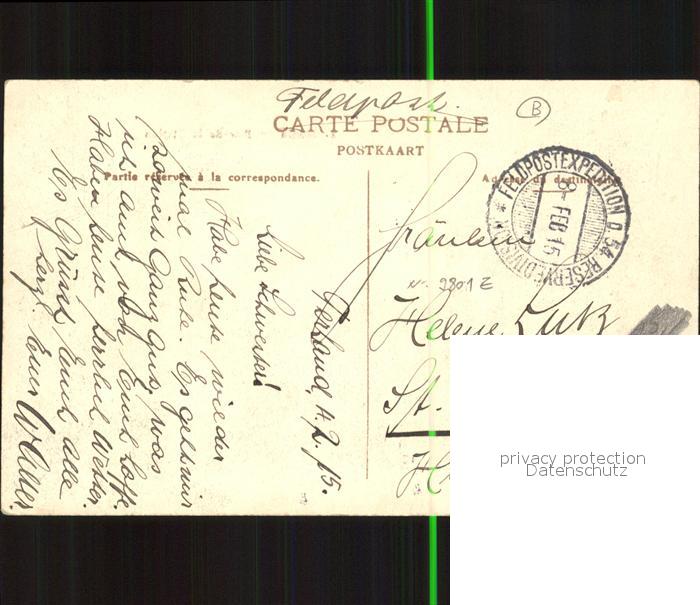 Feldpost.
B
CARTE POSTALE
POSTKAART
Partie réservée à la correspondance.
Adresse du destinataire
* FELDPOSTEXPEDITION D. 54. RESERVEDIVISION *
8 FEB 15
Fräulein
Nr. 2801 E
Helene Lutz
St.
H
4.2.15.
Liebe Schwester!
Habe heute wieder
mal Ruhe. Es geht mir
soweit ganz gut, was
ich auch von Euch hoffe.
Haben heute herrlich Wetter.
Es grüßt Euch alle
herzl. Euer Walter.
privacy protection
Datenschutz